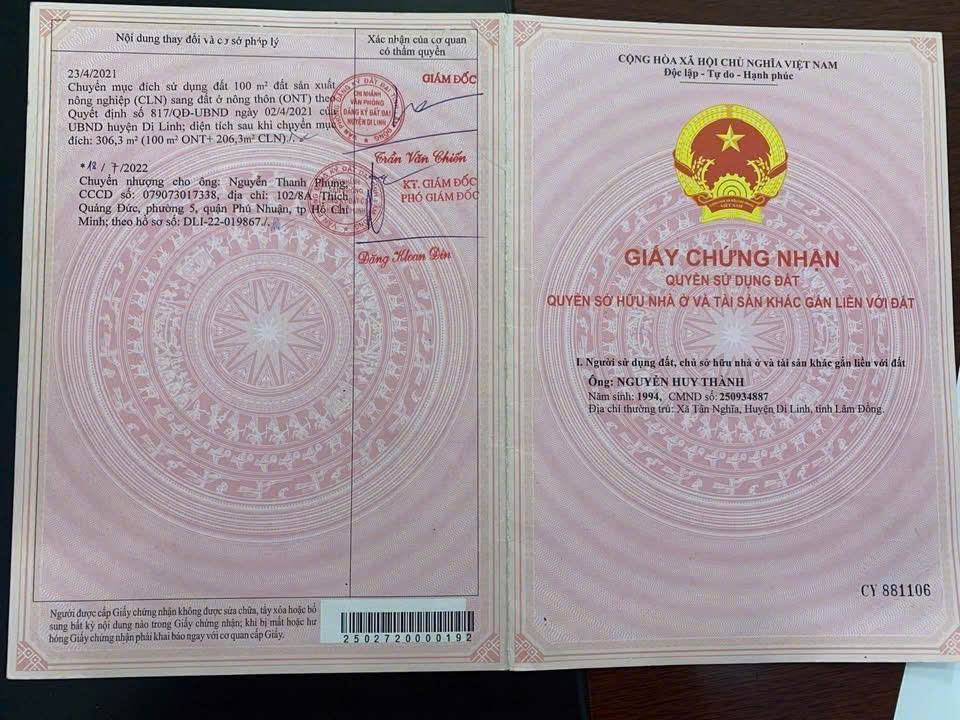 Nội dung thay đổi và cơ sở pháp lý
Xác nhận của cơ quan
có thẩm quyền
23/4/2021
Chuyển mục đích sử dụng đất 100 m² đất sản xuất
nông nghiệp (CLN) sang đất ở nông thôn (ONT) theo
Quyết định số 817/QĐ-UBND ngày 02/4/2021 của
UBND huyện Di Linh; diện tích sau khi chuyển mục
đích: 306,3 m² (100 m² ONT+ 206,3m² CLN)./.
GIÁM ĐỐC
CHI NHÁNH
VĂN PHÒNG
ĐĂNG KÝ ĐẤT ĐAI
HUYỆN DI LINH
Trần Văn Chiến
18/7/2022
Chuyển nhượng cho ông: Nguyễn Thanh Phụng,
CCCD số: 079073017338, địa chỉ: 102/8A Thích
Quảng Đức, phường 5, quận Phú Nhuận, tp Hồ Chí
Minh; theo hồ sơ số: DLI-22-019867./.
KT. GIÁM ĐỐC
PHÓ GIÁM ĐỐC
Đặng Din
Người được cấp Giấy chứng nhận không được sửa chữa, tẩy xóa hoặc bổ
sung bất kỳ nội dung nào trong Giấy chứng nhận; khi bị mất hoặc hư
hỏng Giấy chứng nhận phải khai báo ngay với cơ quan cấp Giấy.
2502720000192
CỘNG HÒA XÃ HỘI CHỦ NGHĨA VIỆT NAM
Độc lập - Tự do - Hạnh phúc
GIẤY CHỨNG NHẬN
QUYỀN SỬ DỤNG ĐẤT
QUYỀN SỞ HỮU NHÀ Ở VÀ TÀI SẢN KHÁC GẮN LIỀN VỚI ĐẤT
I. Người sử dụng đất, chủ sở hữu nhà ở và tài sản khác gắn liền với đất
Ông: NGUYỄN HUY THÀNH
Năm sinh: 1994, CMND số: 250934887
Địa chỉ thường trú: Xã Tân Nghĩa, Huyện Di Linh, tỉnh Lâm Đồng.
CY 881106